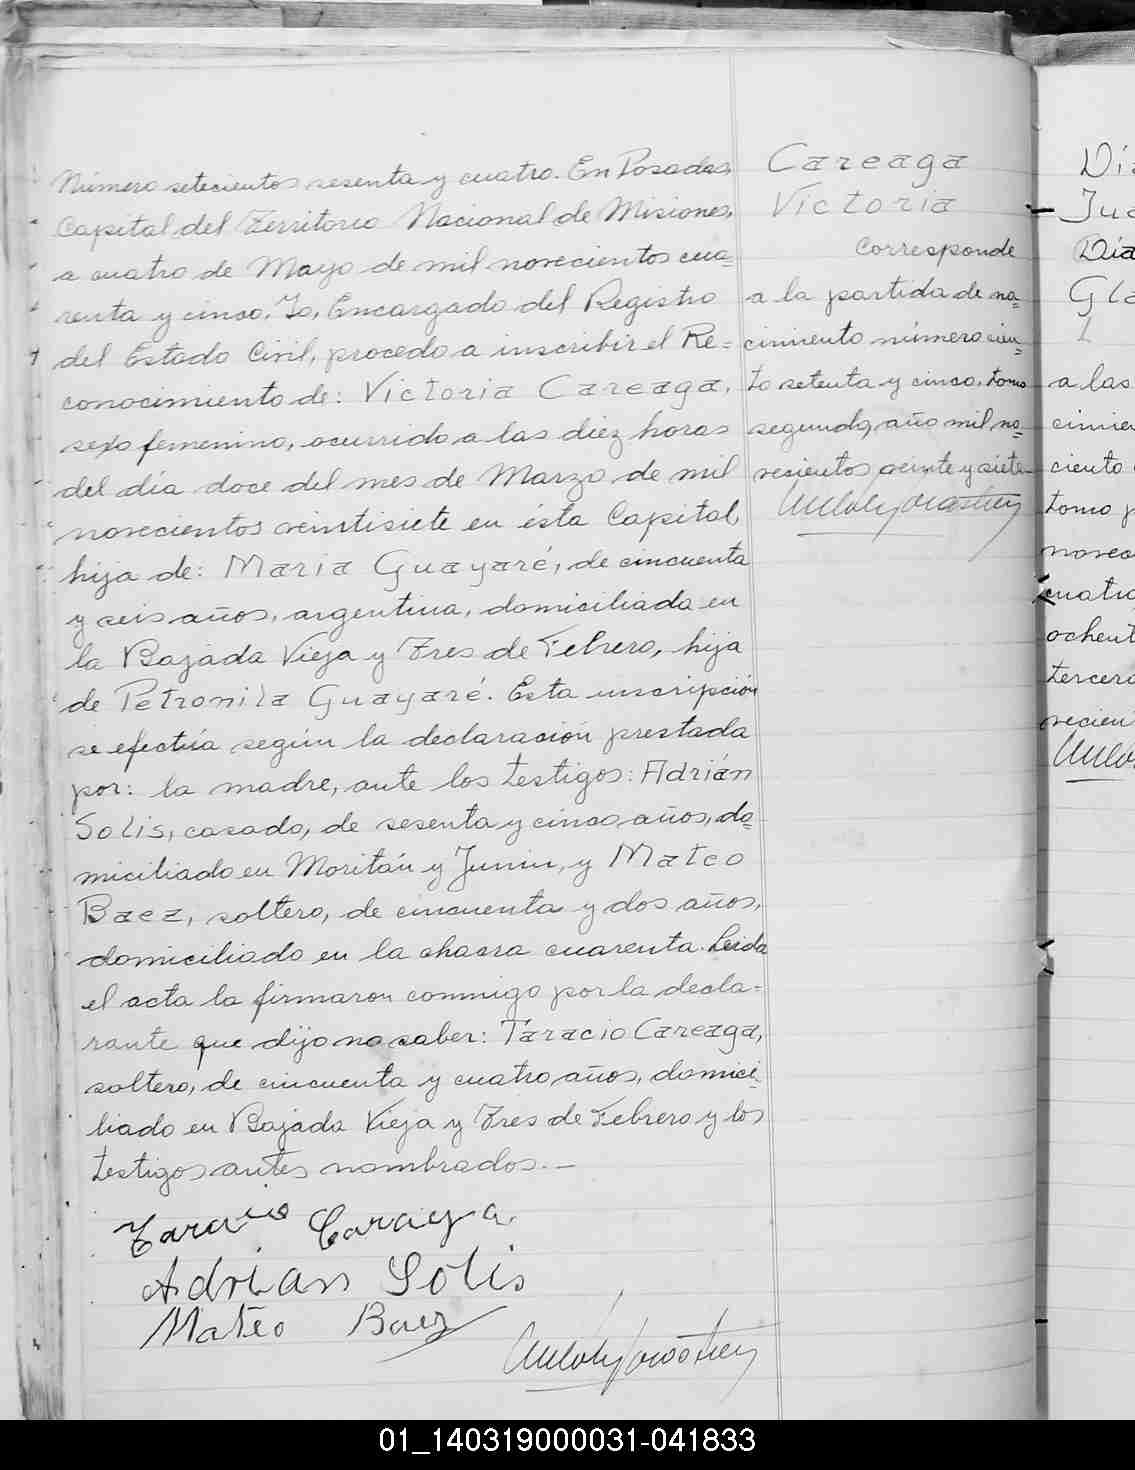 Número setecientos sesenta y cuatro. En Posadas,
Capital del Territorio Nacional de Misiones,
a cuatro de Mayo de mil novecientos cua=
renta y cinco. Yo, Encargado del Registro
del Estado Civil, procedo a inscribir el Re=
conocimiento de: Victoria Careaga,
sexo femenino, ocurrido a las diez horas
del día doce del mes de Marzo de mil
novecientos veintisiete en ésta Capital,
hija de: Maria Guayaré, de cincuenta
y seis años, argentina, domiciliada en
la Bajada Vieja y Tres de Febrero, hija
de Petronila Guayaré. Esta inscripción
se efectúa según la declaración prestada
por: la madre, ante los testigos: Adrián
Solis, casado, de sesenta y cinco años, do=
miciliado en Moritán y Junin, y Mateo
Baez, soltero, de cincuenta y dos años,
domiciliado en la chacra cuarenta. Leida
el acta la firmaron conmigo por la decla=
rante que dijo no saber: Taracio Careaga,
soltero, de cincuenta y cuatro años, domici=
liado en Bajada Vieja y Tres de Febrero y los
testigos antes nombrados.—
Taracio Caraga
Adrian Solis
Mateo Baez
Careaga
Victoria
Corresponde
a la partida de na=
cimiento número cien=
to setenta y cinco, tomo
segundo, año mil no=
vecientos veinte y siete
Día
a las
cimien
ciento
tomo p
novec
cuatro
ochent
tercero
vecien
01_140319000031-041833